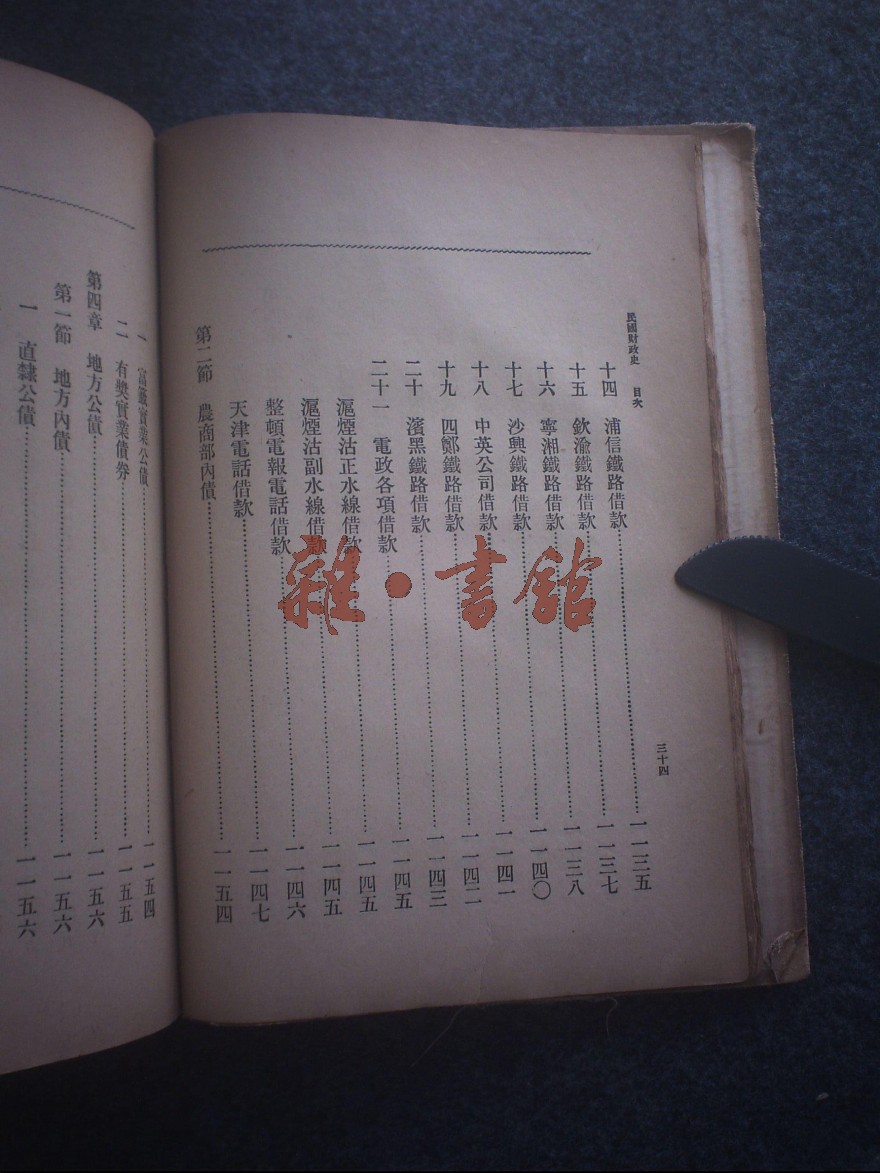 民國財政史 目次 三十四
十四 浦信鐵路借款……一一三五
十五 欽渝鐵路借款……一一三七
十六 寧湘鐵路借款……一一三八
十七 沙興鐵路借款……一一四〇
十八 中英公司借款……一一四一
十九 四鄭鐵路借款……一一四二
二十 濱黑鐵路借款……一一四三
二十一 電政各項借款……一一四五
滬煙沽正水線借款……一一四五
滬煙沽副水線借款……一一四五
整頓電報電話借款……一一四六
天津電話借款……一一四七
第二節 農商部內債……一一五四
一 富籤實業公債……一一五四
二 有奬實業債券……一一五五
第四章 地方公債……一一五六
第一節 地方內債……一一五六
一 直隸公債……一一五六
雜·書館